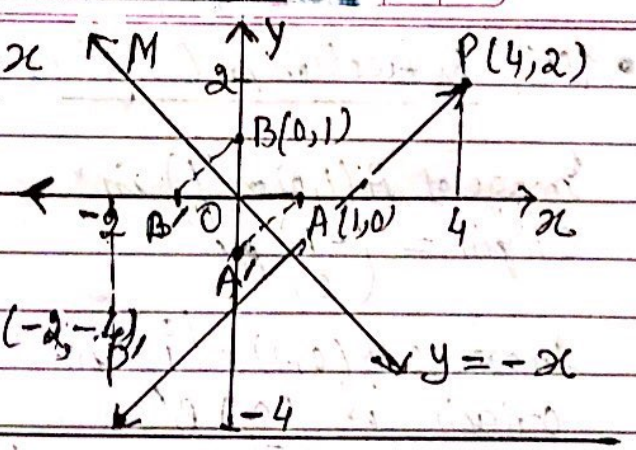 x M Y P(4,2)
2
B(0,1)
-2 B' O A(1,0) 4 x
A'
(-2,-4)
P' y = -x
-4